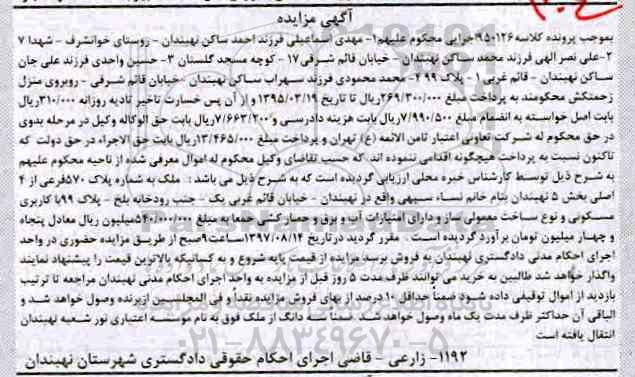 آگهی مزایده
بموجب پرونده کلاسه ۹۵۰۱۲۶اجرایی محکوم علیهم۱- مهدی اسماعیلی فرزند احمد ساکن نهبندان - روستای خوانشرف - شهدا ۷
۲-علی نصر الهی فرزند محمد ساکن نهبندان - خیابان قائم شرقی۱۷ - کوچه مسجد گلستان ۳- حسین واحدی فرزند علی جان
ساکن نهبندان - قائم غربی ۱ - پلاک ۹۹ ۴- محمد محمودی فرزند سهراب ساکن نهبندان -خیابان قائم شرقی - روبروی منزل
زحمتکش محکومند به پرداخت مبلغ ۲۶۹/۳۰۰/۰۰۰ریال تا تاریخ ۱۳۹۵/۰۳/۱۹ و از آن پس خسارت تاخیر تادیه روزانه ۳۱۰/۰۰۰ریال
بابت اصل خواسته به انضمام مبلغ ۷/۹۹۰/۵۰۰ ریال بابت هزینه دادرسی و۷/۶۶۳/۲۰۰ریال بابت حق الوکاله وکیل در مرحله بدوی
در حق محکوم له شرکت تعاونی اعتبار ثامن الائمه (ع) تهران و پرداخت مبلغ ۱۳/۴۶۵/۰۰۰ریال بابت حق الاجراء در حق دولت که
تاکنون نسبت به پرداخت هیچگونه اقدامی ننموده اند. که حسب تقاضای وکیل محکوم له اموال معرفی شده از ناحیه محکوم علیهم
به شرح ذیل توسط کارشناس خبره محلی ارزیابی گردیده است که به شرح ذیل می باشد : ملک به شماره پلاک ۵۷۰فرعی از ۴
اصلی بخش ۵ نهبندان بنام خانم نساء سپیهی واقع در نهبندان - خیابان قائم غربی یک - جنب رودخانه بلخ - پلاک ۹۹با کاربری
مسکونی و نوع ساخت معمولی ساز و دارای امتیازات آب و برق و حصار کشی جمعا به مبلغ ۵۴۰/۰۰۰/۰۰۰میلیون ریال معادل پنجاه
و چهار میلیون تومان برآورد گردیده است . مقرر گردید در تاریخ ۱۳۹۷/۰۸/۱۴ساعت۹صبح از طریق مزایده حضوری در واحد
اجرای احکام مدنی دادگستری نهبندان به فروش برسد.مزایده از قیمت پایه شروع و به کسانیکه بالاترین قیمت را پیشنهاد نمایند
واگذار خواهد شد طالبین به خرید می توانند ظرف مدت ۵ روز قبل از مزایده به واحد اجرای احکام مدنی نهبندان مراجعه تا ترتیب
بازدید از اموال توقیفی داده شود ضمناً حداقل ۱۰ درصد از بهای فروش مزایده نقداً و فی المجلس از برنده وصول خواهد شد و
الباقی آن حداکثر ظرف مدت یک ماه وصول خواهد شد. ضمناً سه دانگ از ملک فوق به نام موسسه اعتباری نور شعبه نهبندان
انتقال یافته است
۰۲۱-۸۸۳۴۹۶۷۰-۵
۱۱۹۲- زارعی - قاضی اجرای احکام حقوقی دادگستری شهرستان نهبندان